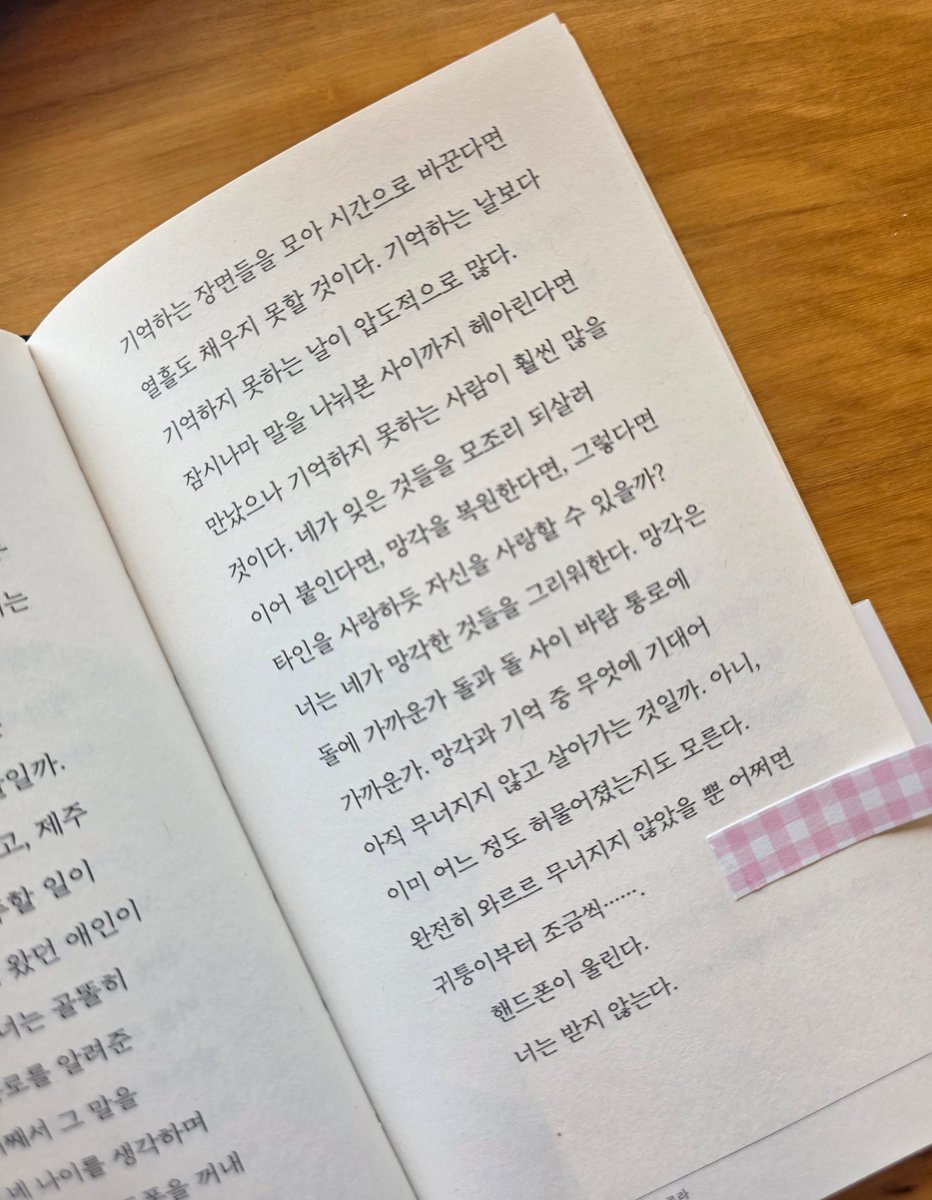 는
일까.
고, 제주
할 일이
왔던 애인이
너는 골똘히
로를 알려준
째서 그 말을
네 나이를 생각하며
을 꺼내
기억하는 장면들을 모아 시간으로 바꾼다면
열흘도 채우지 못할 것이다. 기억하는 날보다
기억하지 못하는 날이 압도적으로 많다.
잠시나마 말을 나눠본 사이까지 헤아린다면
만났으나 기억하지 못하는 사람이 훨씬 많을
것이다. 네가 잊은 것들을 모조리 되살려
이어 붙인다면, 망각을 복원한다면, 그렇다면
타인을 사랑하듯 자신을 사랑할 수 있을까?
너는 네가 망각한 것들을 그리워한다. 망각은
돌에 가까운가 돌과 돌 사이 바람 통로에
가까운가. 망각과 기억 중 무엇에 기대어
아직 무너지지 않고 살아가는 것일까. 아니,
이미 어느 정도 허물어졌는지도 모른다.
완전히 와르르 무너지지 않았을 뿐 어쩌면
귀퉁이부터 조금씩…….
핸드폰이 울린다.
너는 받지 않는다.